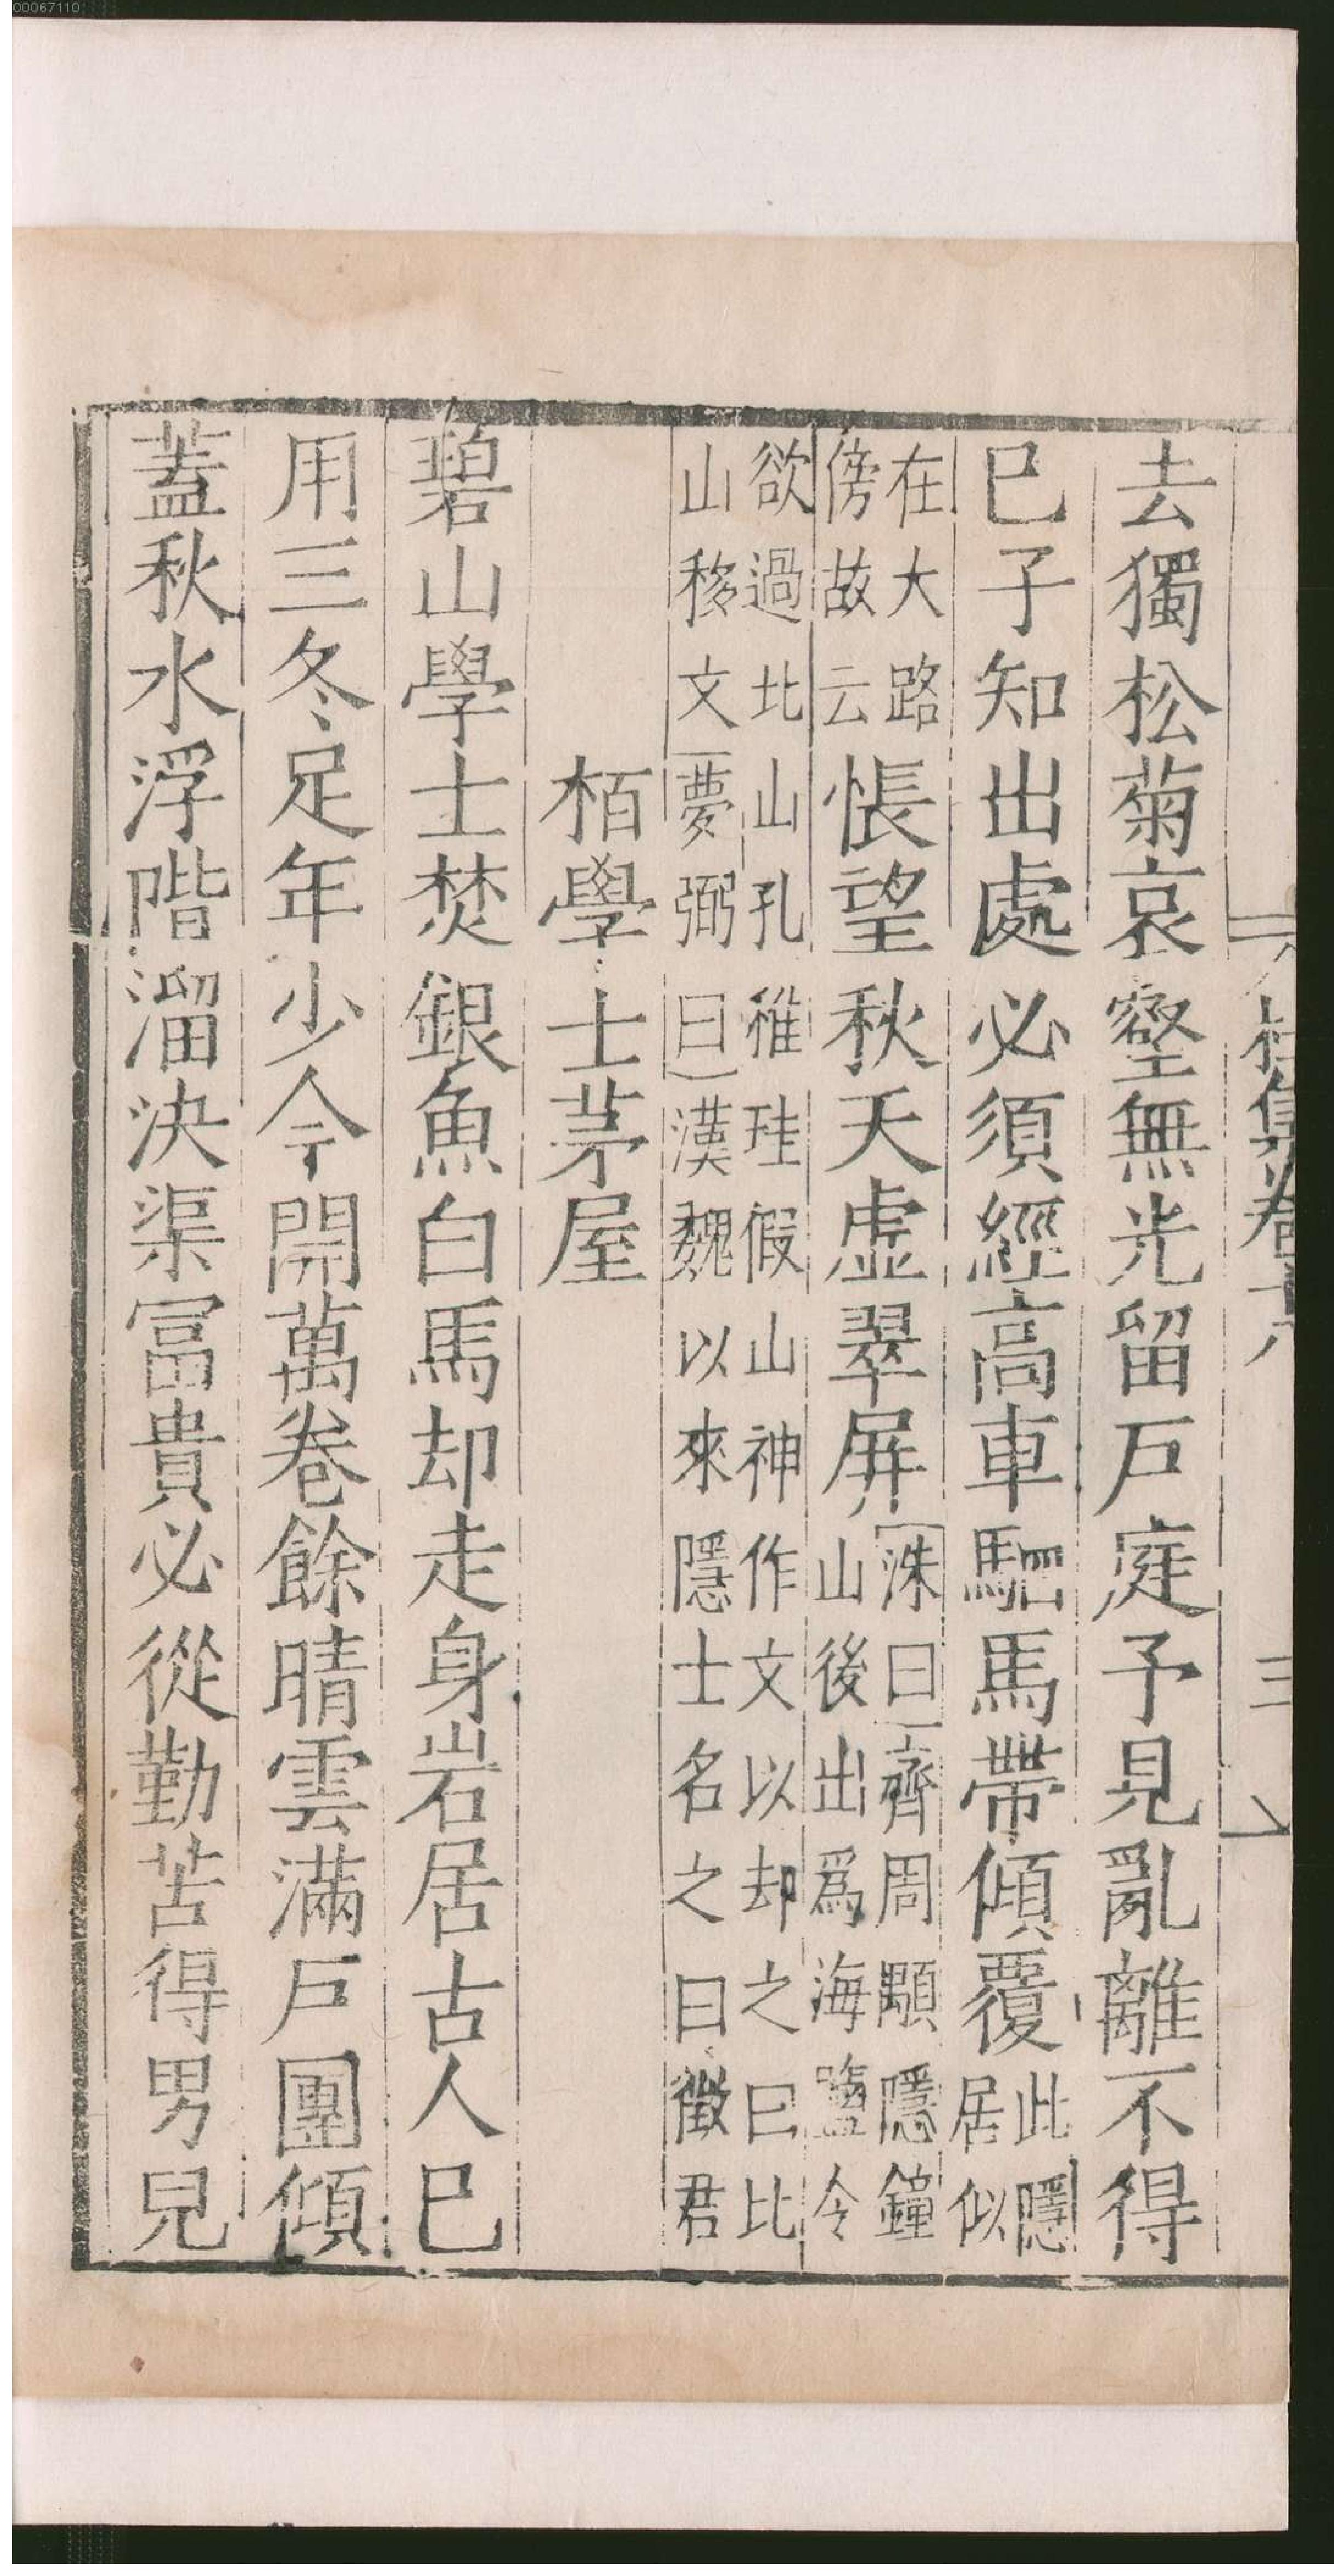 00067110
杜集卷十八
三
去獨松菊哀壑無光留戸庭予見亂離不得
已子知出處必須經高車駟馬帶傾覆此隱
居似
在大路
傍故云悵望秋天虛翠屏洙曰齊周顒隱鐘
山後出爲海鹽令
欲過北山孔稚珪假山神作文以却之曰比
山移文夢弼曰漢魏以來隱士名之曰徵君
栢學士茅屋
碧山學士焚銀魚白馬却走身岩居古人已
用三冬足年少今開萬卷餘晴雲滿戸團傾
蓋秋水浮階溜決渠冨貴必從勤苦得男兒